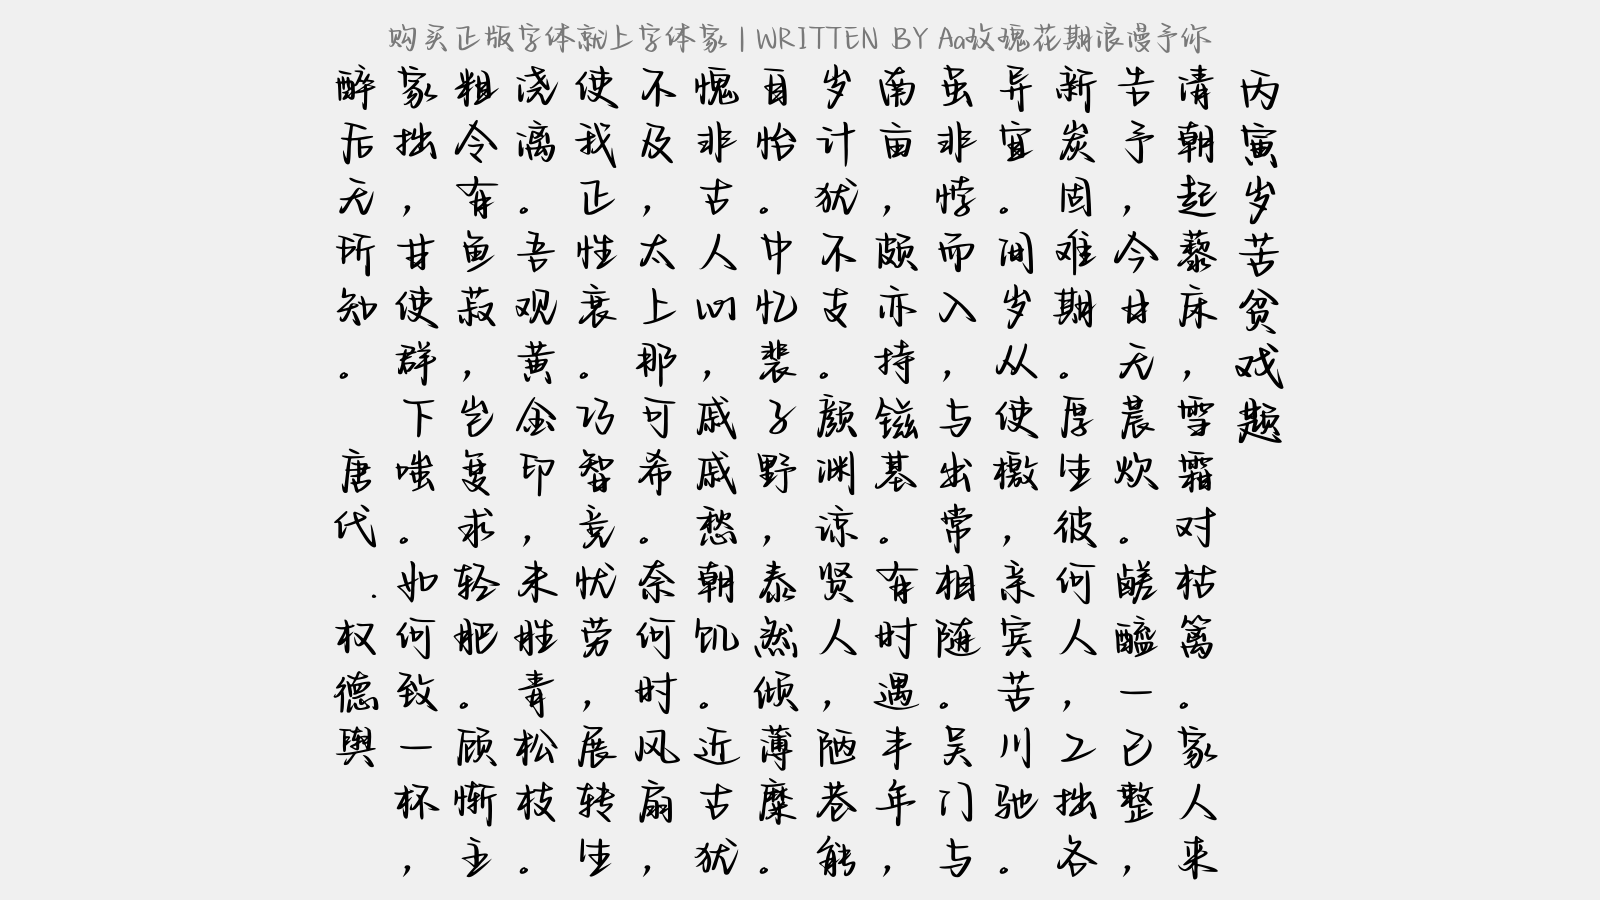 购买正版字体就上字体家 | WRITTEN BY Aa玫瑰花期浪漫予你
丙寅岁苦贫戏题
清朝起藜床，雪霜对枯篱。家人来
告予，今日无晨炊。鹾醯一已整，
新炭固难期。厚生彼何人，工拙各
异宜。间岁从使檄，亲宾苦川驰。
虽非悖而入，与出常相随。吴门与
南亩，颇亦持镃基。有时遇丰年，
岁计犹不支。颜渊谅贤人，陋巷能
自怡。中忆裴子野，泰然倾薄糜。
愧非古人心，戚戚愁朝饥。近古犹
不及，太上那可希。奈何时风扇，
使我正性衰。巧智竞忧劳，展转生
浇漓。吾观黄金印，未胜青松枝。
粗令有鱼菽，岂复求轻肥。顾惭主
家拙，甘使群下嗤。如何致一杯，
醉后无所知。 唐代.权德舆